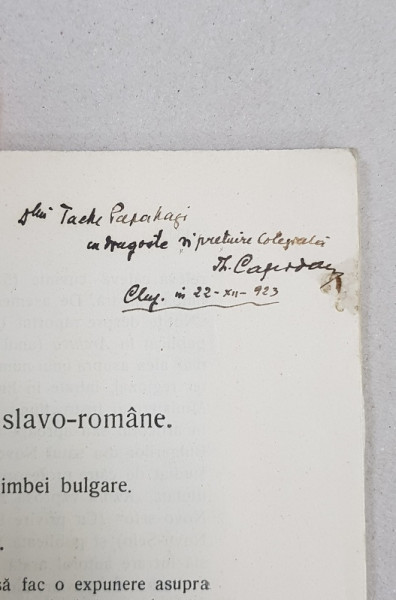 Dlui Tache Papahagi
cu dragoste și prețuire colegială
Th. Capidan
Cluj. in 22-XII-923
slavo-române.
imbei bulgare.
.
să fac o expunere asupra